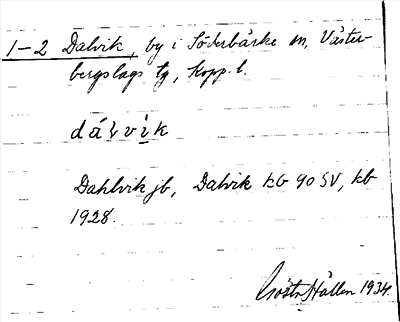 1-2 Dalvik, by i Söderbärke sn, Väster-
bergslags tg, Kopp. l.
dálvik
Dahlvik jb, Dalvik kb 90 SV, kb
1928.
Gösta Hallén 1934.